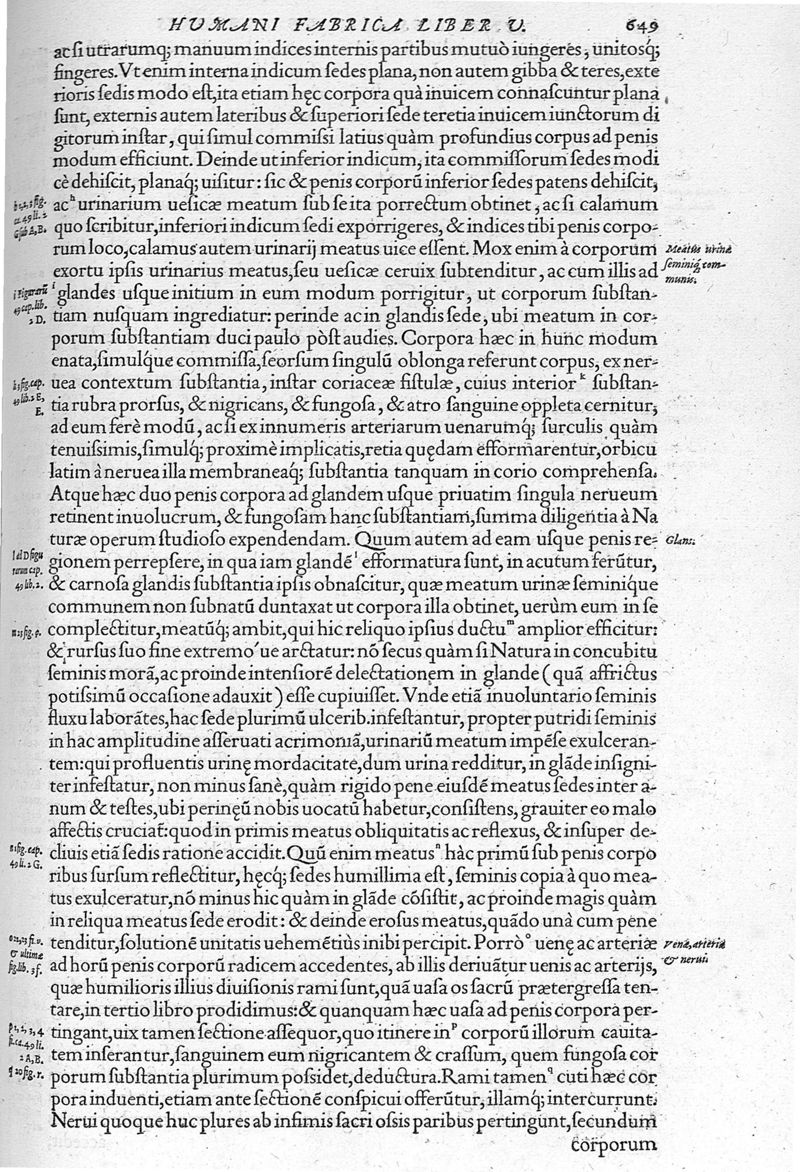 HUMANI FABRICA LIBER V. 649
ac si utrarumq; manuum indices internis partibus mutuò iungeres, unitosq;
fingeres. Vt enim interna indicum sedes plana, non autem gibba & teres, exte
rioris sedis modo est, ita etiam hęc corpora quà inuicem connascuntur plana
sunt, externis autem lateribus & superiori sede teretia inuicem iunctorum di
gitorum instar, qui simul commissi latius quàm profundius corpus ad penis
modum efficiunt. Deinde ut inferior indicum, ita commissorum sedes modi
cè dehiscit, planaq; uisitur: sic & penis corporū inferior sedes patens dehiscit,
h 1, 2, 3 fig.
ca. 49 li. 2
G sub A, B.
ac h urinarium uesicæ meatum sub se ita porrectum obtinet, ac si calamum
quo scribitur, inferiori indicum sedi exporrigeres, & indices tibi penis corpo-
rum loco, calamus autem urinarij meatus uice essent. Mox enim à corporum
Meatus urinæ
seminiq; com-
munis.
exortu ipsis urinarius meatus, seu uesicæ ceruix subtenditur, ac cum illis ad
i Figurarū
49 cap. lib.
2 D.
i glandes usque initium in eum modum porrigitur, ut corporum substan-
tiam nusquam ingrediatur: perinde ac in glandis sede, ubi meatum in cor-
porum substantiam duci paulo pòst audies. Corpora hæc in hunc modum
enata, simulque commissa, seorsum singulū oblonga referunt corpus, ex ner-
k 3 fig. cap.
49 lib. 2 E,
E.
uea contextum substantia, instar coriaceæ fistulæ, cuius interior k substan-
tia rubra prorsus, & nigricans, & fungosa, & atro sanguine oppleta cernitur,
ad eum ferè modū, ac si ex innumeris arteriarum uenarumq; surculis quàm
tenuissimis, simulq; proximè implicatis, retia quędam efformarentur, orbicu
latim à neruea illa membraneaq; substantia tanquam in corio comprehensa.
Atque hæc duo penis corpora ad glandem usque priuatim singula nerueum
retinent inuolucrum, & fungosam hanc substantiam, summa diligentia à Na
turæ operum studioso expendendam. Quum autem ad eam usque penis re-
Glans.
l ad D figu
rarum cap.
49 lib. 2.
gionem perrepsere, in qua iam glandē l efformatura sunt, in acutum ferūtur,
& carnosa glandis substantia ipsis obnascitur, quæ meatum urinæ seminique
communem non subnatū duntaxat ut corpora illa obtinet, uerùm eum in se
m 23 fig. p.
complectitur, meatūq; ambit, qui hic reliquo ipsius ductu m amplior efficitur:
& rursus suo fine extremo´ue arctatur: nō secus quàm si Natura in concubitu
seminis morā, ac proinde intensiorē delectationem in glande (quā affrictus
potissimū occasione adauxit) esse cupiuisset. Vnde etiā inuoluntario seminis
fluxu laborātes, hac sede plurimū ulcerib. infestantur, propter putridi seminis
in hac amplitudine asseruati acrimoniā, urinariū meatum impēse exulceran-
tem: qui profluentis urinę mordacitate, dum urina redditur, in glāde insigni-
ter infestatur, non minus sanè, quàm rigido pene eiusdē meatus sedes inter a-
num & testes, ubi perinęū nobis uocatū habetur, consistens, grauiter eo malo
affectis cruciat̄: quod in primis meatus obliquitatis ac reflexus, & insuper de-
n 1 fig. cap.
49 li. 2 G.
cliuis etiā sedis ratione accidit. Quū enim meatus n hàc primū sub penis corpo
ribus sursum reflectitur, hęcq; sedes humillima est, seminis copia à quo mea-
tus exulceratur, nō minus hic quàm in glāde cōsistit, ac proinde magis quàm
in reliqua meatus sede erodit: & deinde erosus meatus, quādo unà cum pene
o 22, 23 fi. u.
& ultimæ
fig. lib. 3 f.
tenditur, solutionē unitatis uehemētiùs inibi percipit. Porrò o uenę ac arteriæ
Venæ, arteriæ
& nerui
ad horū penis corporū radicem accedentes, ab illis deriuātur uenis ac arterijs,
quæ humilioris illius diuisionis rami sunt, quā uasa os sacrū prætergressa ten-
tare, in tertio libro prodidimus: & quanquam hæc uasa ad penis corpora per-
p 1, 2, 3, 4
fi. ca. 49 li.
2 A, B.
tingant, uix tamen sectione assequor, quo itinere in p corporū illorum cauita-
tem inserantur, sanguinem eum nigricantem & crassum, quem fungosa cor
q 20 fig. r.
porum substantia plurimum possidet, deductura. Rami tamen q cuti hæc cor
pora induenti, etiam ante sectionē conspicui offerūtur, illamq; intercurrunt.
Nerui quoque huc plures ab infimis sacri ossis paribus pertingunt, secundum
corporum